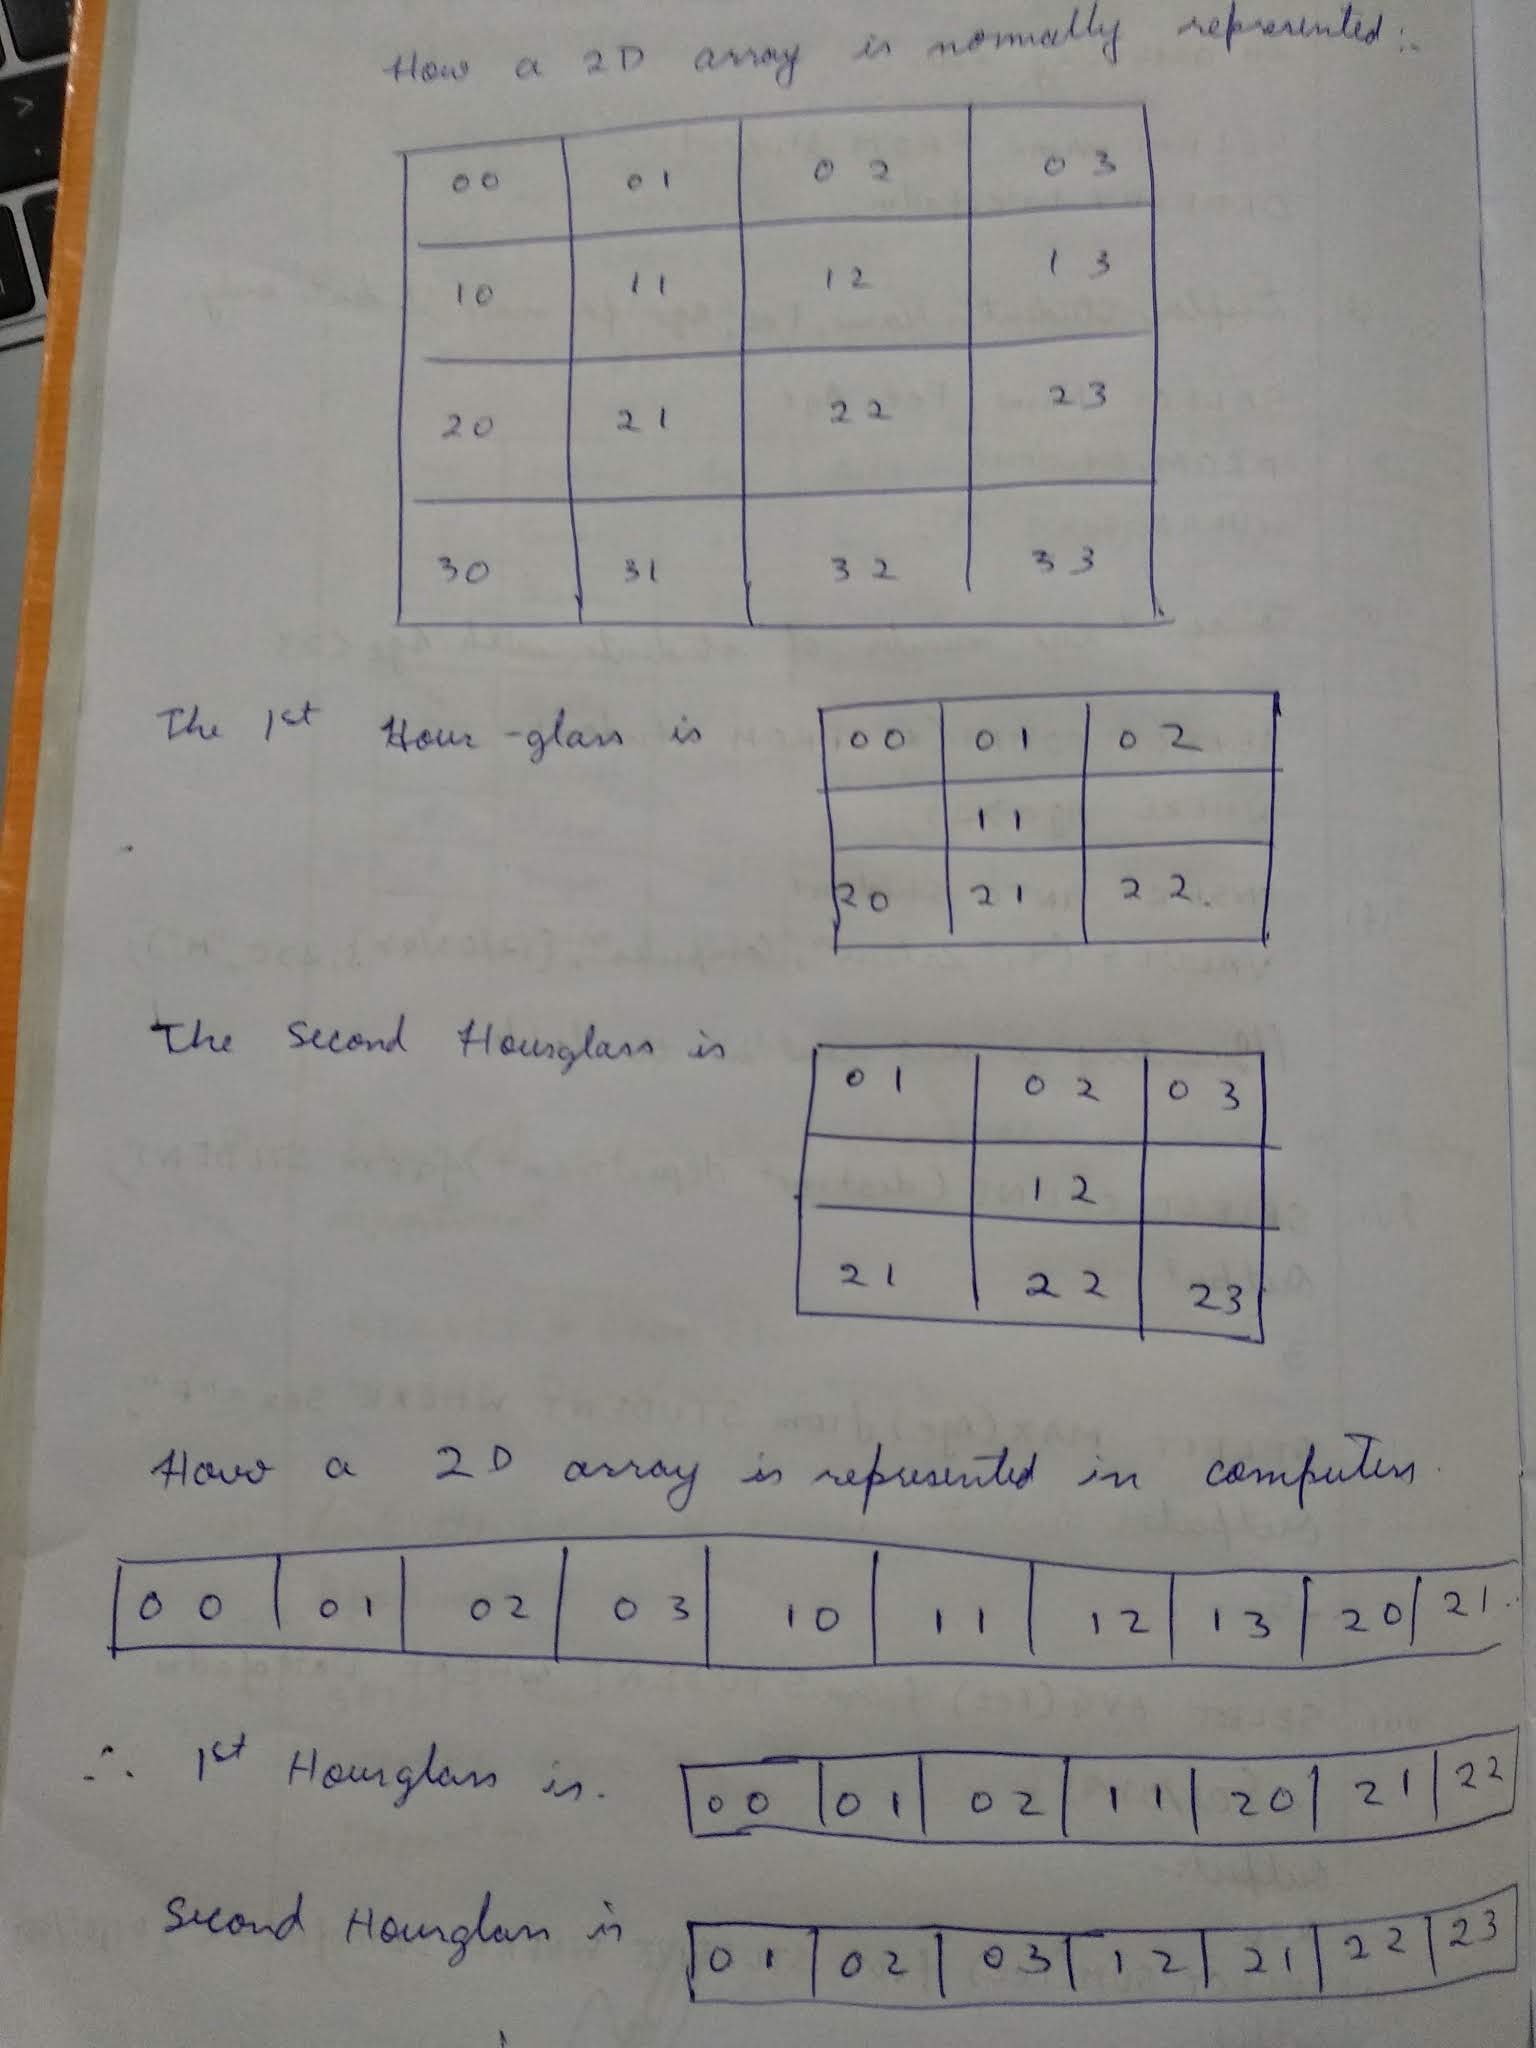 How a 2D array is normally represented:-
00 01 02 03
10 11 12 13
20 21 22 23
30 31 32 33
The 1st Hour-glass is
00 01 02
11
20 21 22.
The Second Hourglass is
01 02 03
12
21 22 23
How a 2D array is represented in computers.
00 01 02 03 10 11 12 13 20 21..
∴ 1st Hourglass is.
00 01 02 11 20 21 22
Second Hourglass is
01 02 03 12 21 22 23